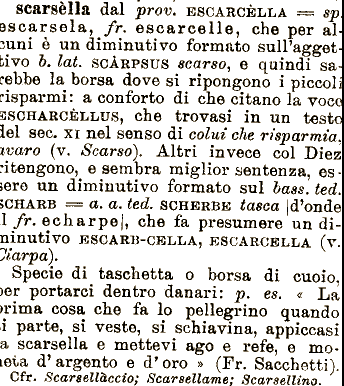 scarsèlla dal prov. ESCARCÈLLA = sp.
escarsela, fr. escarcelle, che per al-
cuni è un diminutivo formato sull'agget-
tivo b. lat. SCÀRPSUS scarso, e quindi sa-
rebbe la borsa dove si ripongono i piccoli
risparmi: a conforto di che citano la voce
ESCHARCÈLLUS, che trovasi in un testo
del sec. XI nel senso di colui che risparmia,
avaro (v. Scarso). Altri invece col Diez
ritengono, e sembra miglior sentenza, es-
sere un diminutivo formato sul bass. ted.
SCHARB = a. a. ted. SCHERBE tasca |d'onde
il fr. echarpe|, che fa presumere un di-
minutivo ESCARB-CELLA, ESCARCELLA (v.
Ciarpa).
Specie di taschetta o borsa di cuoio,
per portarci dentro danari: p. es. « La
prima cosa che fa lo pellegrino quando
si parte, si veste, si schiavina, appiccasi
la scarsella e mettevi ago e refe, e mo-
neta d'argento e d'oro » (Fr. Sacchetti).
Cfr. Scarsellàccio; Scarsellame; Scarsellino.